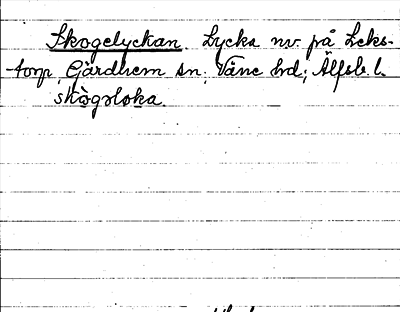 Skogelyckan. Lycka nv. på Leks-
torp, Gärdhem sn; Väne hd; Älfsb. l.
skògəloka